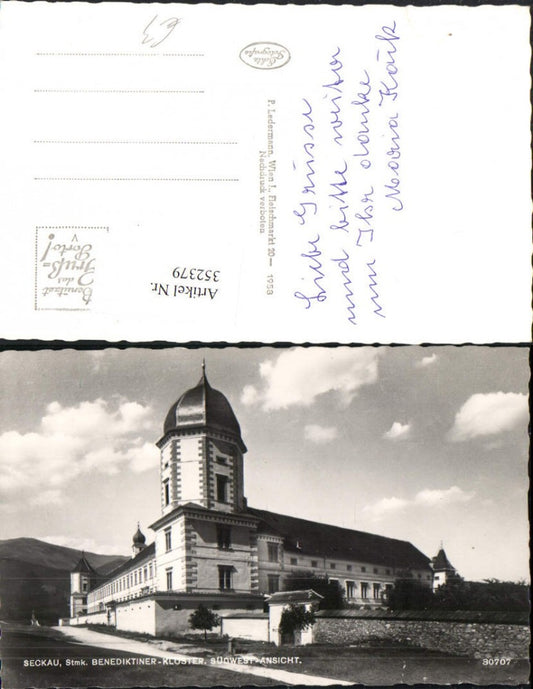 €3
Echte
Fotografie
Liebe Grüsse
und bitte weiter
um Ihr danke
Maria
P. Ledermann, Wien I., Fleischmarkt 20— 1958
Nachdruck verboten
Artikel Nr.
352379
Benützet
das
Fruß=
Porto!
SECKAU, Stmk. BENEDIKTINER-KLOSTER. SÜDWEST-ANSICHT.
30707